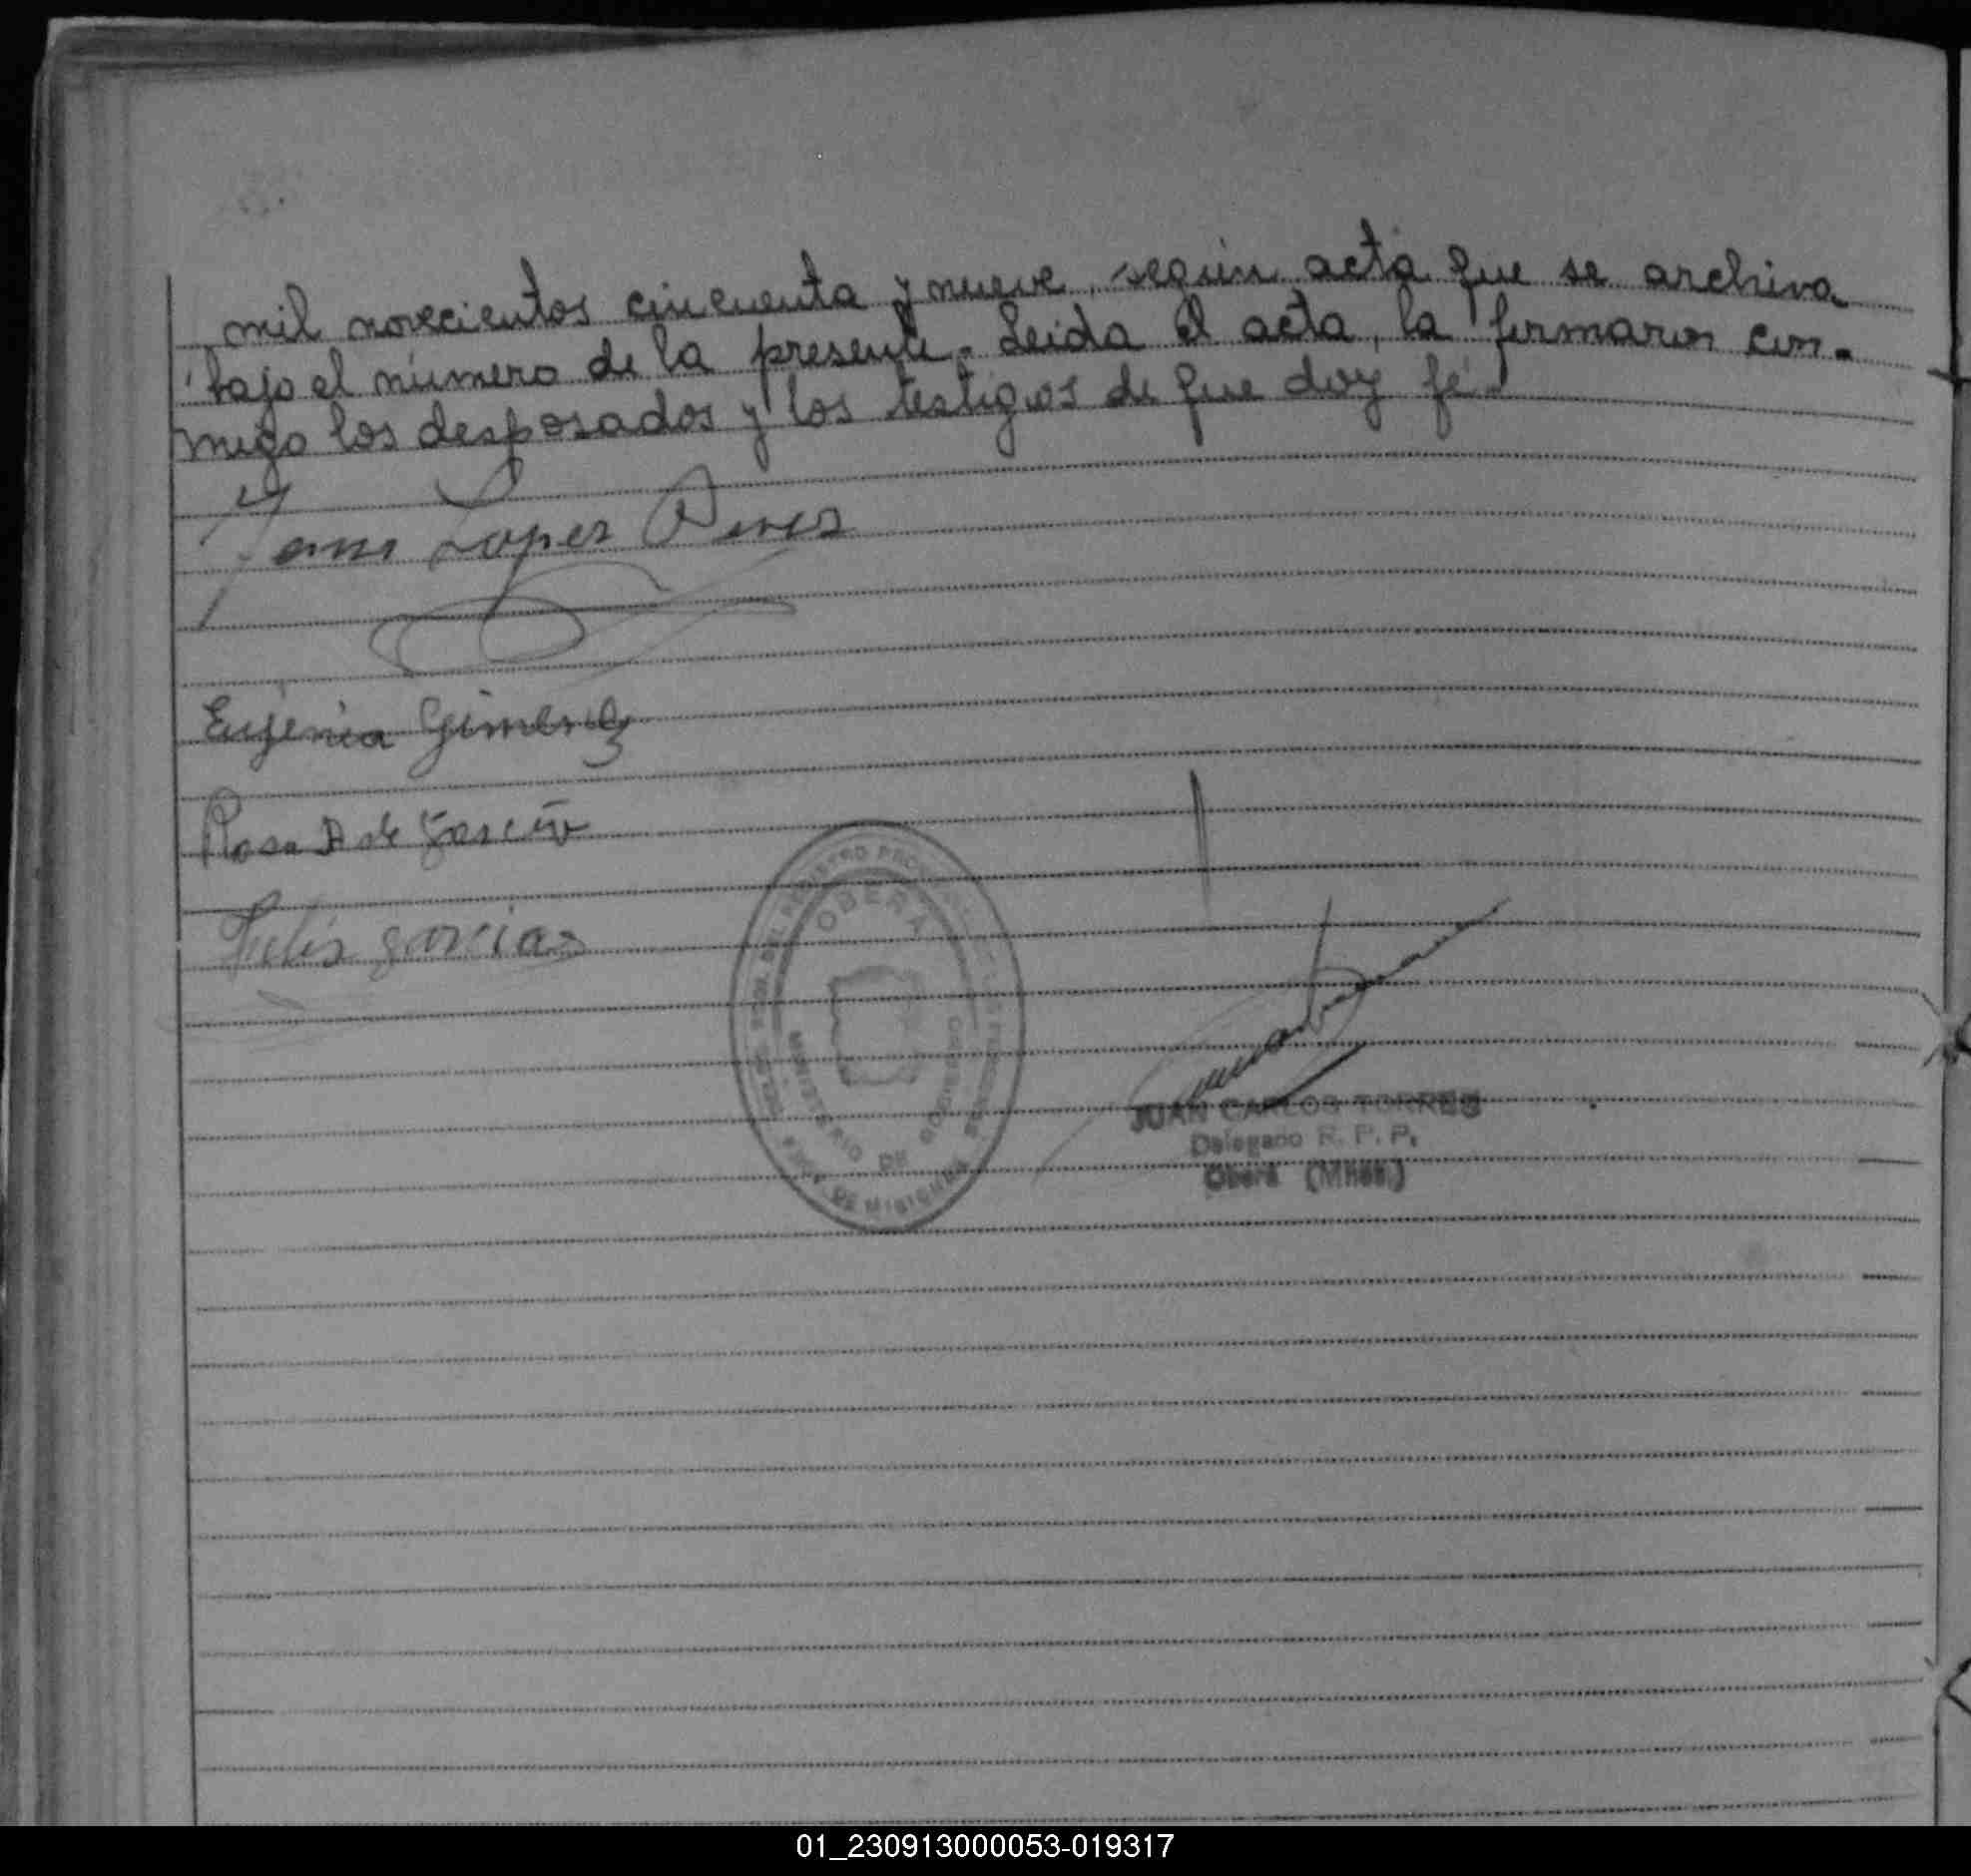 mil novecientos cincuenta y nueve, según acta que se archiva
bajo el número de la presente.- Leida el acta, la firmaron con-
migo los desposados y los testigos de que doy fé.-
Lopez
Eugenia Gimenez
Rosa A de Garcia
Garcia
OBERA
MINISTERIO DE GOBIERNO
DE MISIONES
JUAN CARLOS TORRES
Delegado R. P. P.
Oberá (Mnes.)
01_230913000053-019317